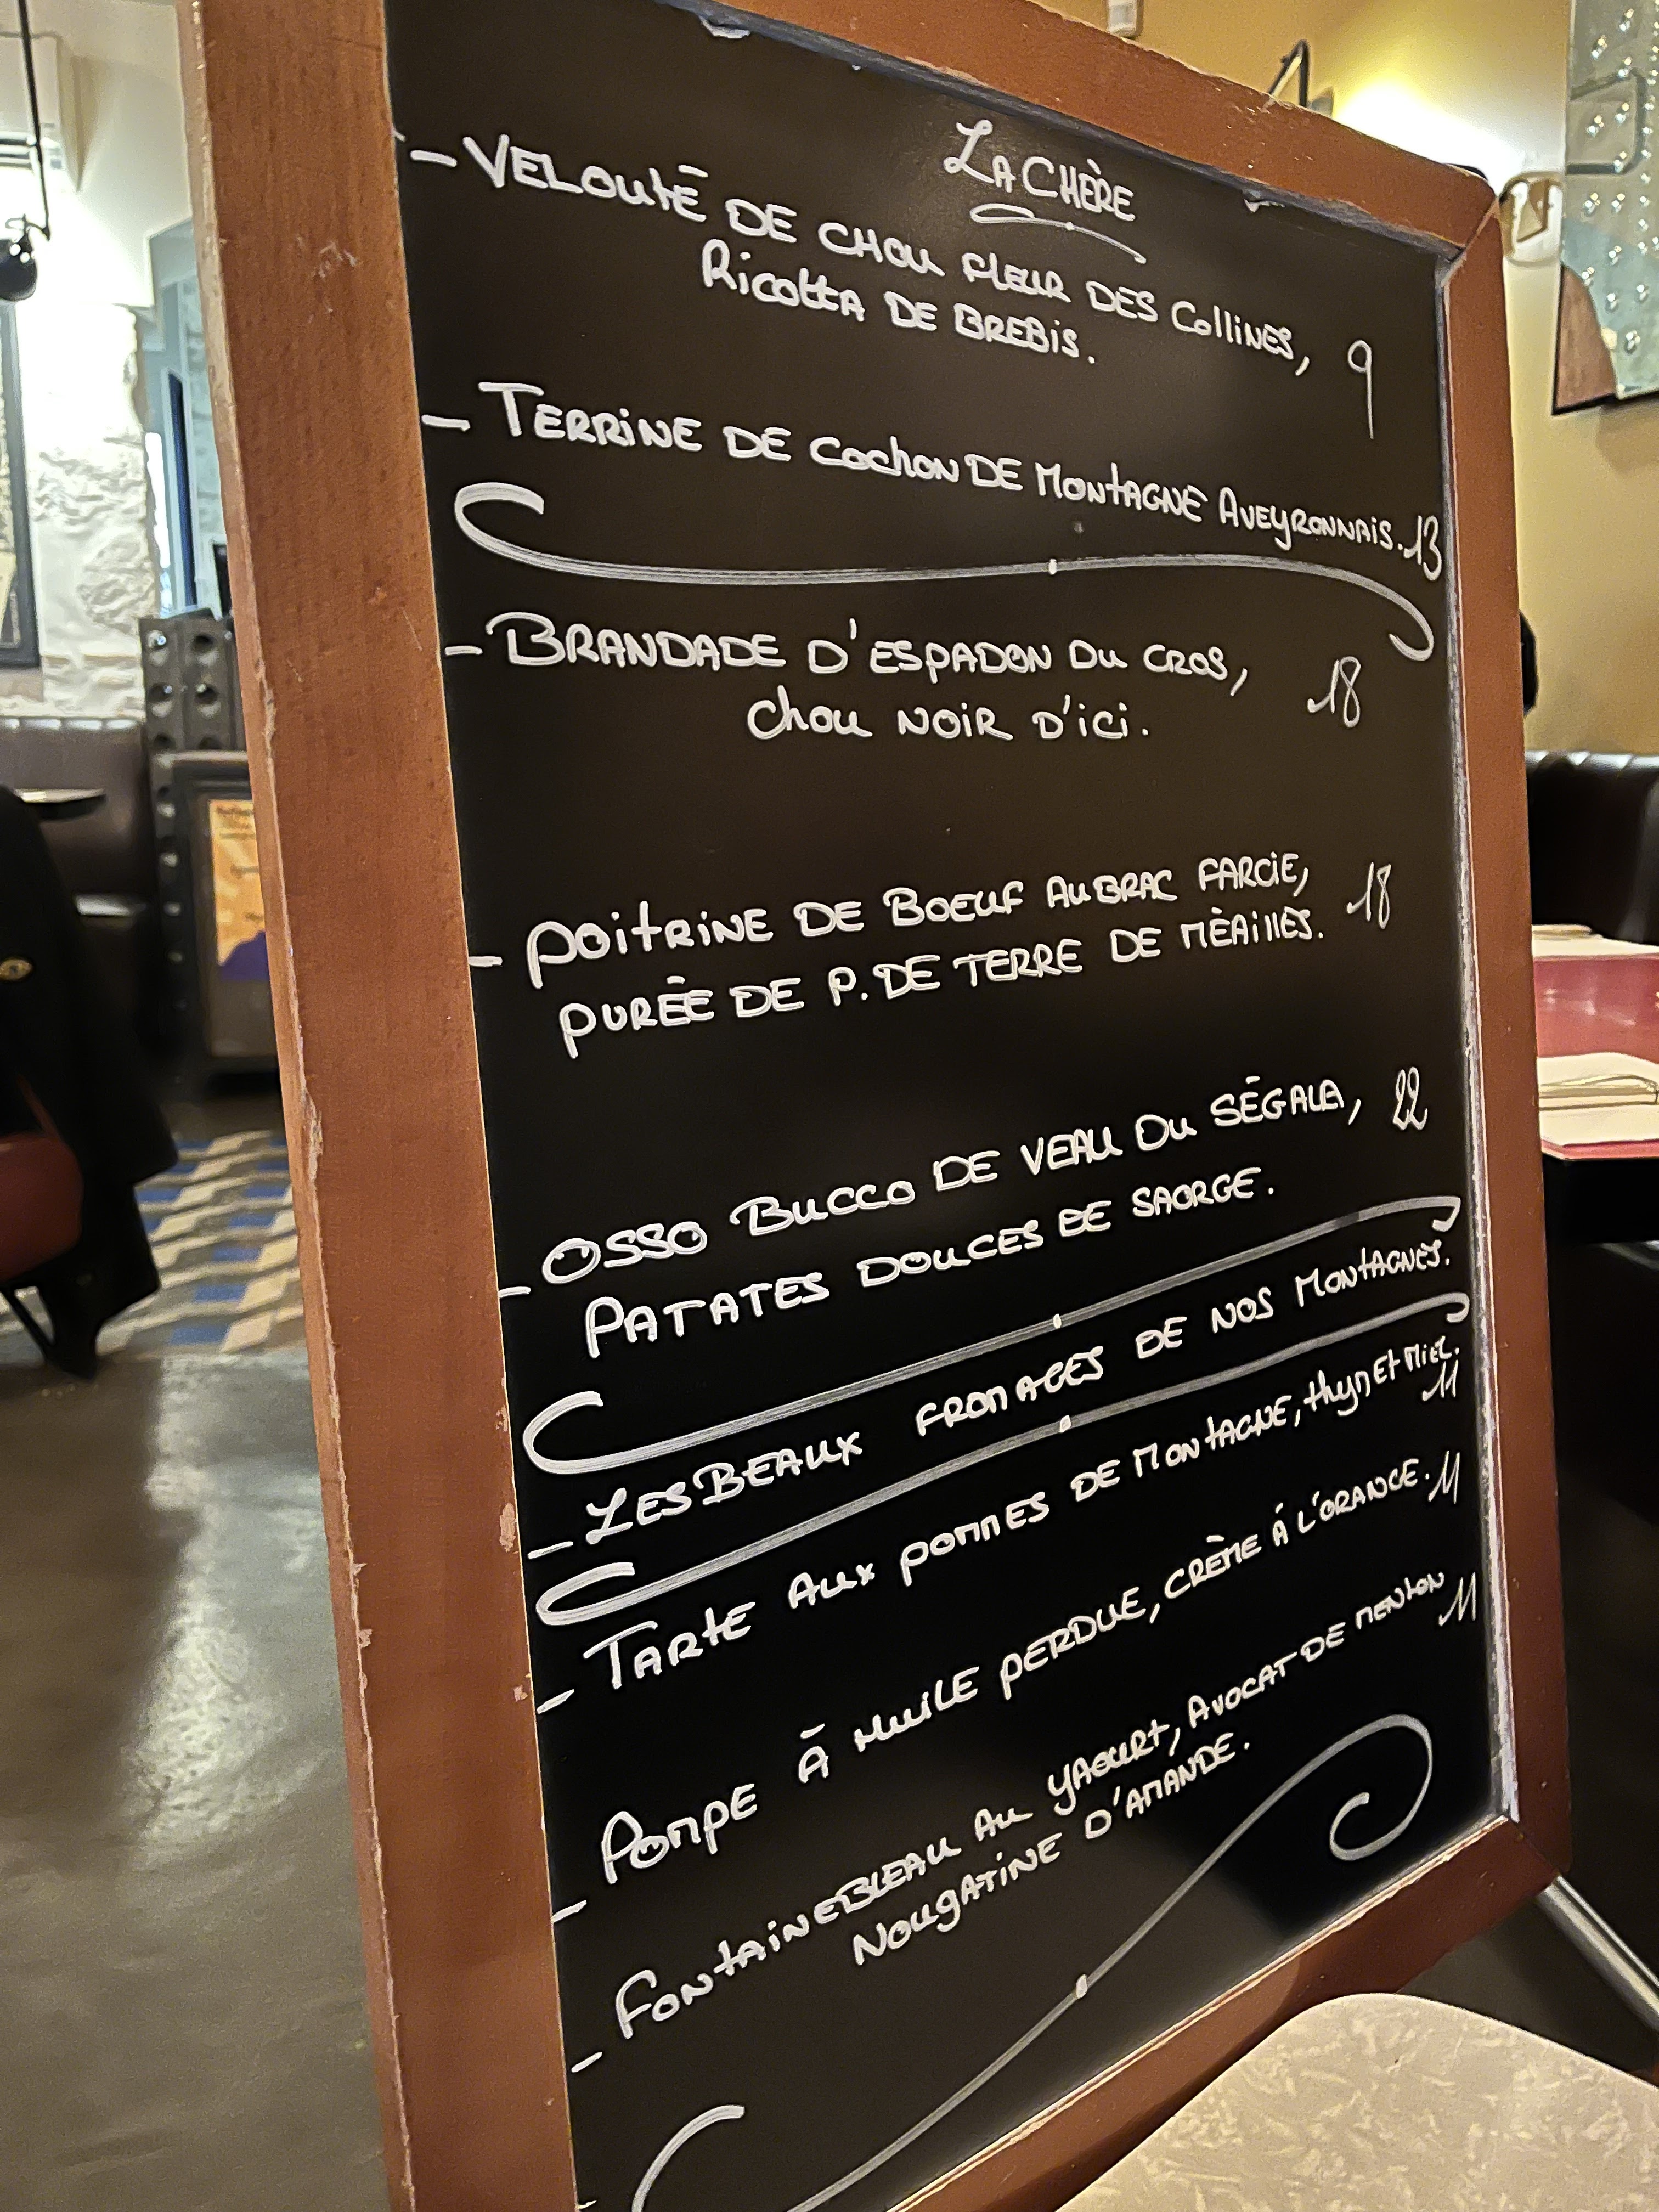 La Chère
- Velouté de chou fleur des collines, 9
Ricotta de brebis.
- Terrine de cochon de montagne Aveyronnais. 13
- Brandade d'espadon du cros, 18
chou noir d'ici.
- Poitrine de boeuf Aubrac farcie, 18
purée de p. de terre de Mèailles.
- Osso bucco de veau du Ségala, 22
Patates douces de Saorge.
- Les beaux fromages de nos montagnes.
- Tarte aux pommes de montagne, thym et miel. 11
- Pompe à huile perdue, crème á l'orange. 11
- Fontainebleau au yaourt, avocat de menton 11
Nougatine d'amande.